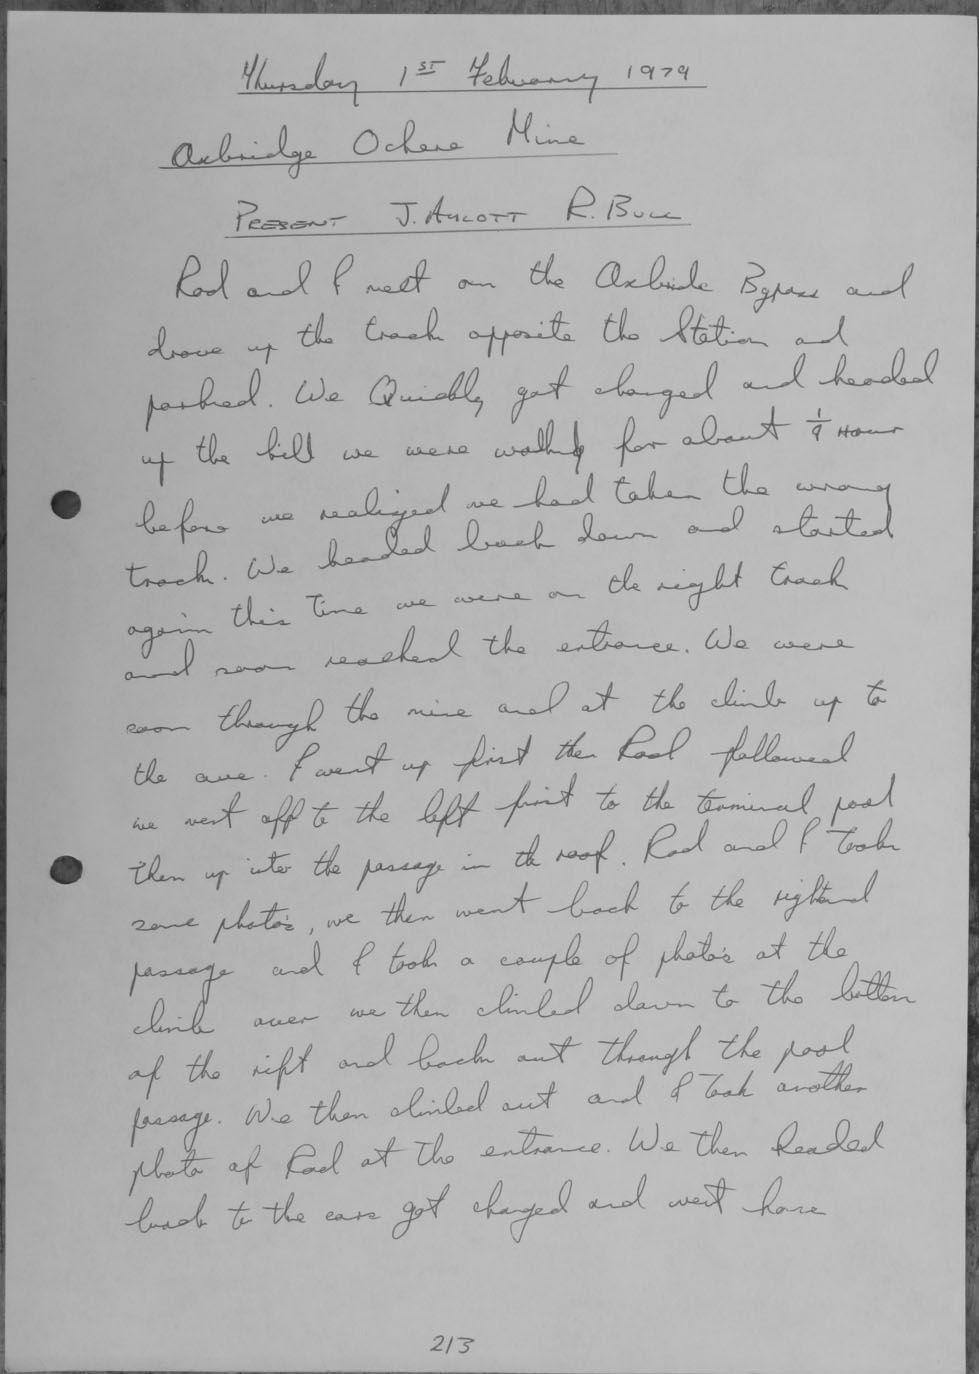 Thursday 1ST February 1979
Axbridge Ochere Mine
PRESENT J. AYLOTT R. BULL
Rod and I meet on the Axbride Bypass and
drove up the track opposite the Station and
parked. We Quickly got changed and headed
up the hill we were walking for about Hour
before we realized we had taken the wrong
track. We headed back down and started
again this Time we were on the right track
and soon reached the entrance. We were
soon through the mine and at the climb up to
the cave. I went up first then Rod followed
we went off to the left first to the terminal pool
then up into the passage in the roof. Rod and I Took
some photo's, we then went back to the righthand
passage and I took a couple of photo's at the
climb over we then climbed down to the bottom
of the rift and back out through the pool
passage. We then climbed out and I Took another
photo of Rod at the entrance. We then headed
back to the cars got changed and went home
213